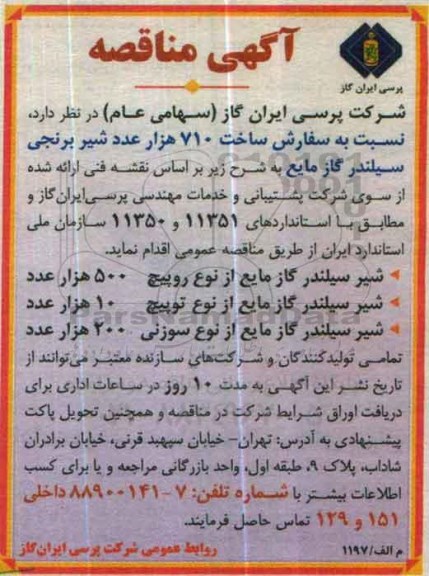 آگهی مناقصه
پرسی ایران گاز
شرکت پرسی ایران گاز (سهامی عام) در نظر دارد،
نسبت به سفارش ساخت ۷۱۰ هزار عدد شیر برنجی
سیلندر گاز مایع به شرح زیر بر اساس نقشه فنی ارائه شده
از سوی شرکت پشتیبانی و خدمات مهندسی پرسی‌ایران‌گاز و
مطابق با استانداردهای ۱۱۳۵۱ و ۱۱۳۵۰ سازمان ملی
استاندارد ایران از طریق مناقصه عمومی اقدام نماید.
شیر سیلندر گاز مایع از نوع روپیچ ۵۰۰ هزار عدد
شیر سیلندر گاز مایع از نوع توپیچ ۱۰ هزار عدد
شیر سیلندر گاز مایع از نوع سوزنی ۲۰۰ هزار عدد
ParsNamadData
تمامی تولیدکنندگان و شرکت‌های سازنده معتبر می‌توانند از
تاریخ نشر این آگهی به مدت ۱۰ روز در ساعات اداری برای
دریافت اوراق شرایط شرکت در مناقصه و همچنین تحویل پاکت
پیشنهادی به آدرس: تهران- خیابان سپهبد قرنی، خیابان برادران
شاداب، پلاک ۹، طبقه اول، واحد بازرگانی مراجعه و یا برای کسب
اطلاعات بیشتر با شماره تلفن: ۷-۸۸۹۰۰۱۴۱ داخلی
۱۵۱ و ۱۲۹ تماس حاصل فرمایند.
م الف/۱۱۹۷ روابط عمومی شرکت پرسی ایران‌گاز